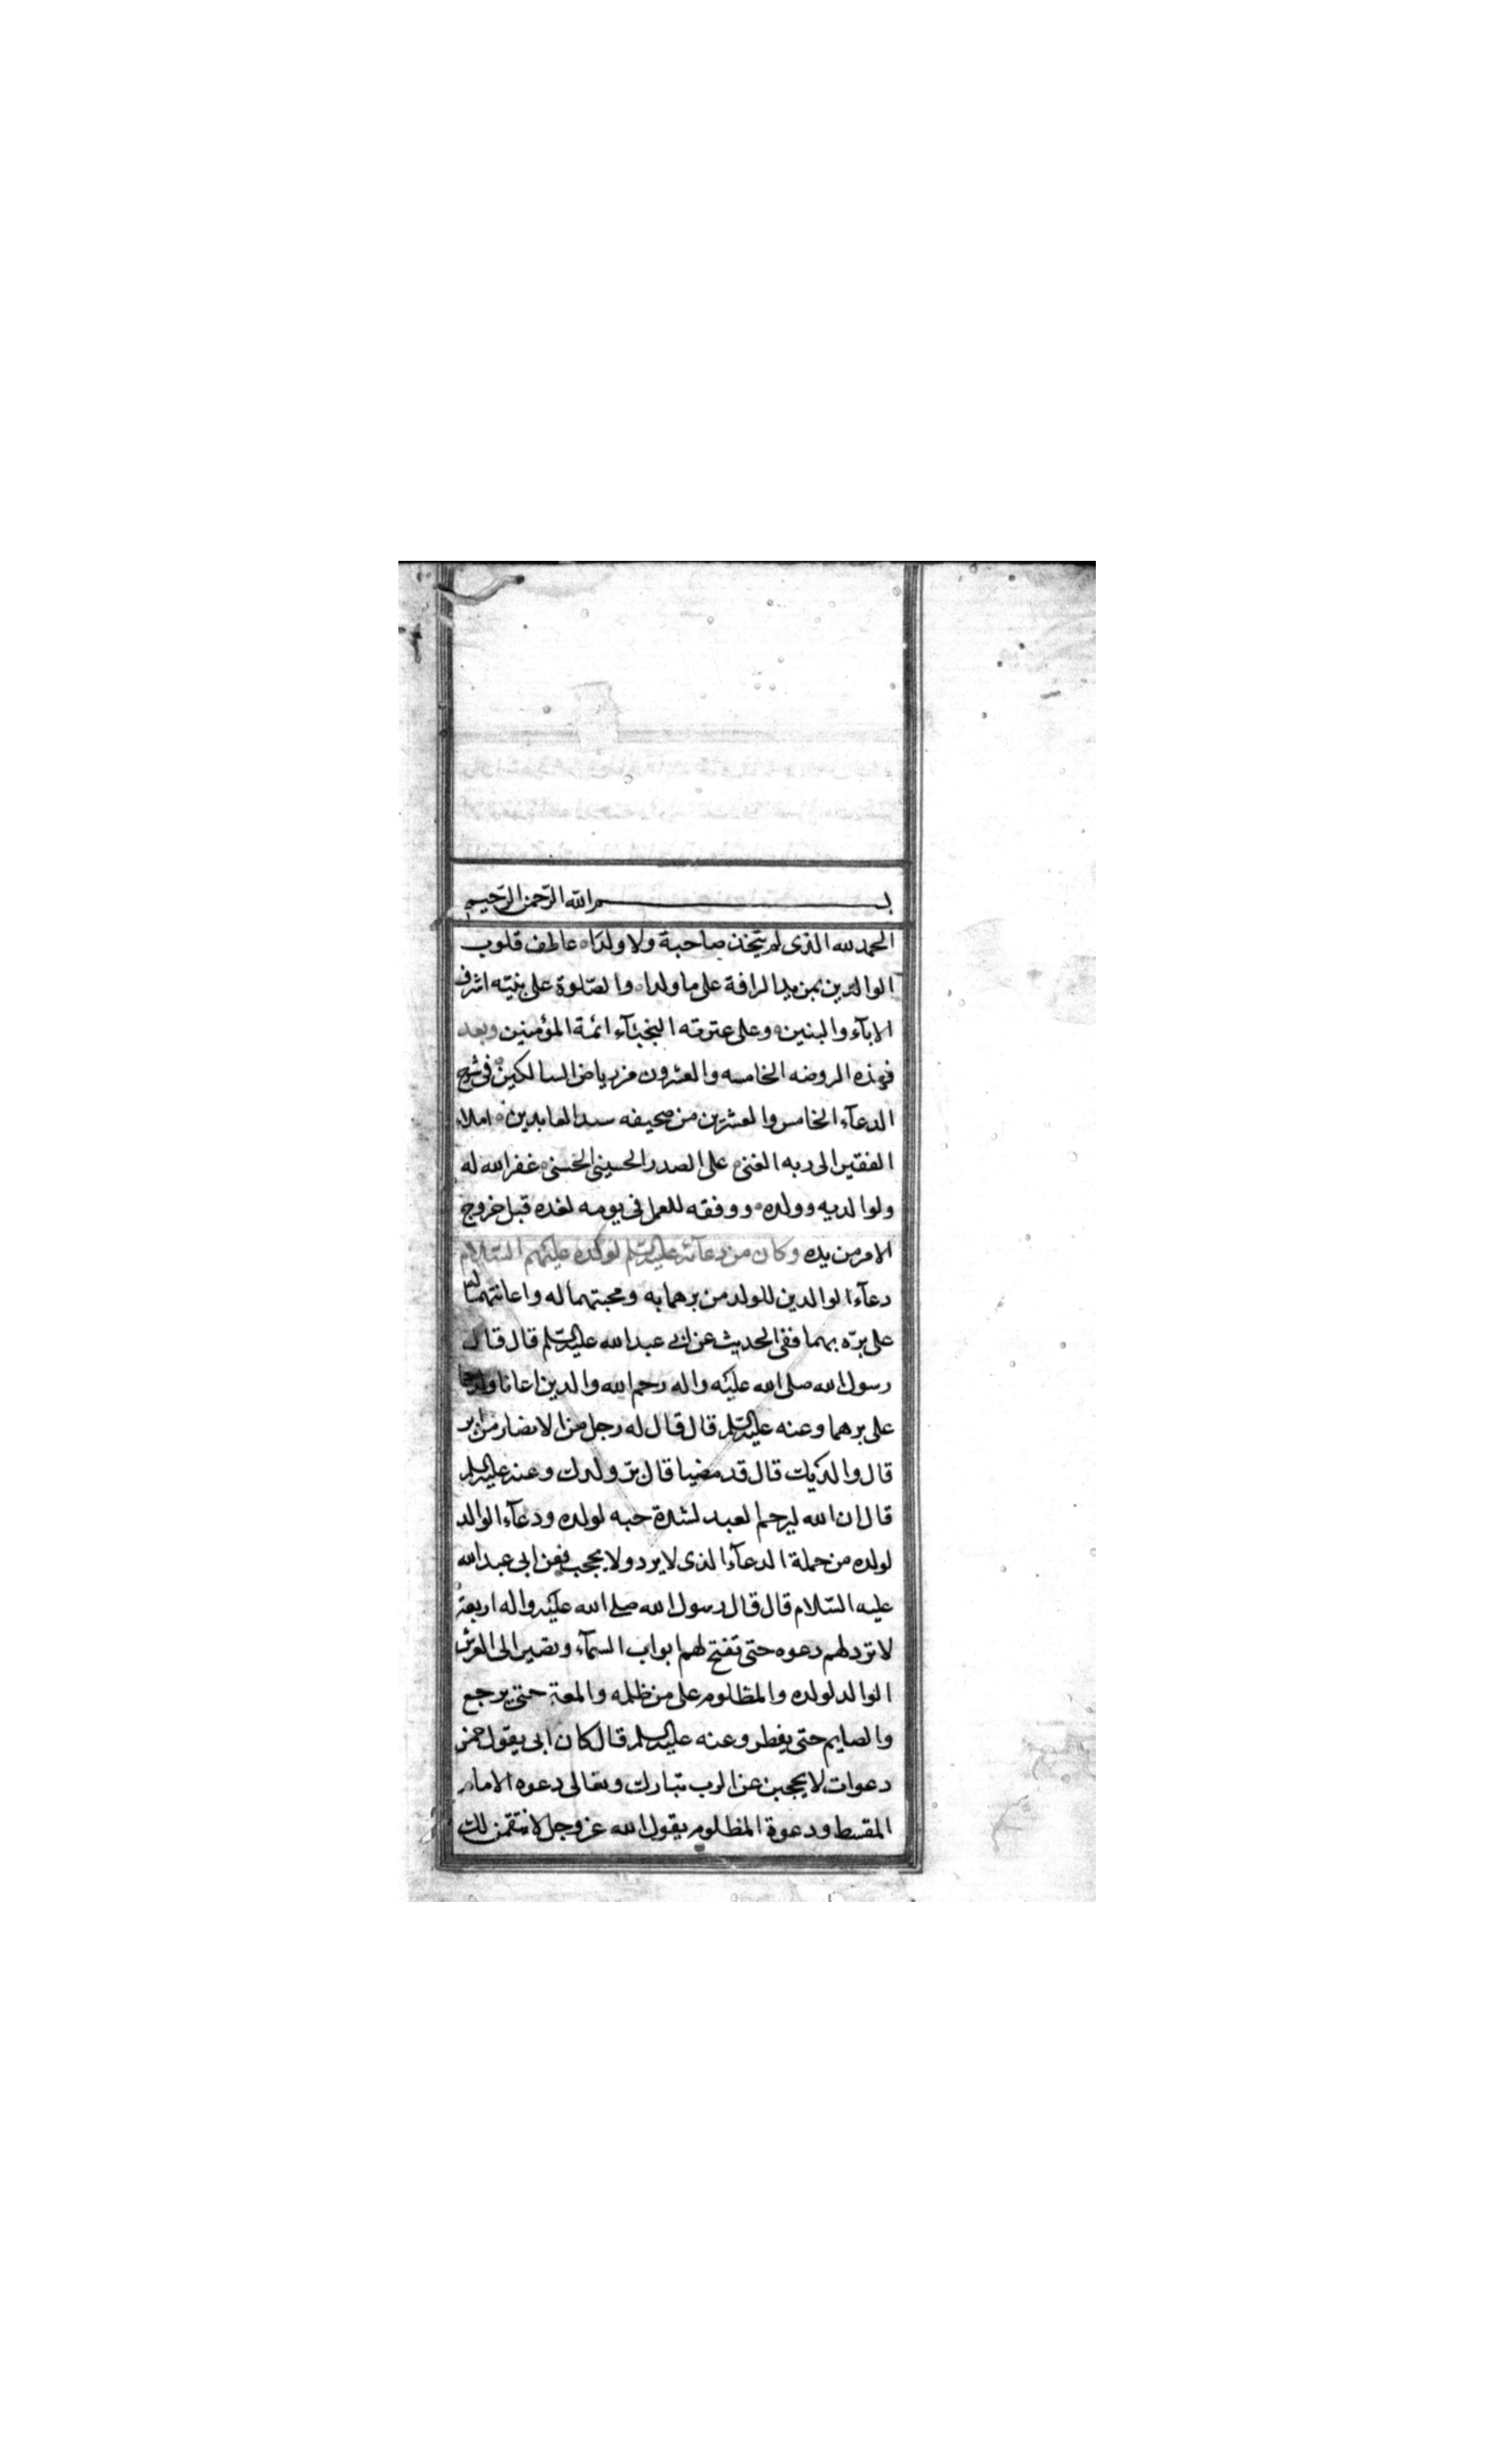 بسم الله الرّحمن الرّحيم
الحمد لله الذى لم يتخذ صاحبة ولا ولدًا عاطف قلوب
الوالدين بمزيد الرافة على ما ولدا والصّلوة على نبيّه اشرف
الابآء والبنين وعلى عترته النجبآء ائمة المؤمنين وبعد
فهذه الروضه الخامسه والعشرون من رياض السالكين فى شرح
الدعآء الخامس والعشرين من صحيفه سيد العابدين املاء
الفقير الى ربه الغنى على الصدر الحسينى الحسنى غفر الله له
ولوالديه وولده ووفقه للعمل فى يومه لغده قبل خروج
الامر من يده وكان من دعآئه عليه السّلم لولده عليهم السّلام
دعآء الوالدين للولد من برهما به ومحبتهما له واعانتهما له
على برّه بهما ففى الحديث عن ابى عبد الله عليه السّلم قال قال
رسول الله صلى الله عليه واله رحم الله والدين اعانا ولدهما
على برهما وعنه عليه السّلم قال قال له رجل من الانصار من ابر
قال والديك قال قد مضيا قال برّ ولدك وعنه عليه السلم
قال ان الله ليرحم العبد لشدة حبه لولده ودعآء الوالد
لولده من جملة الدعآء الذى لا يرد ولا يحجب فعن ابى عبد الله
عليه السّلام قال قال رسول الله صلى الله عليه واله اربعة
لا ترد لهم دعوه حتى تفتح لهم ابواب السمآء وتصير الى العرش
الوالد لولده والمظلوم على من ظلمه والمعتمر حتى يرجع
والصايم حتى يفطر وعنه عليه السلم قال كان ابى يقول خمس
دعوات لا يحجبن عن الرب تبارك وتعالى دعوه الامام
المقسط ودعوة المظلوم يقول الله عز وجل لانتقمن لك